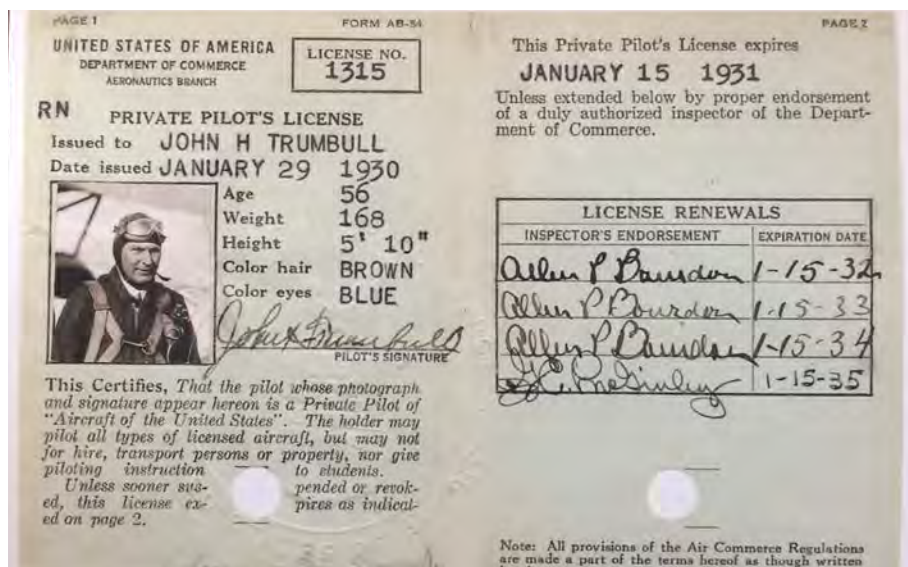 PAGE 1
FORM AB-54
UNITED STATES OF AMERICA
DEPARTMENT OF COMMERCE
AERONAUTICS BRANCH
LICENSE NO.
1315
RN
PRIVATE PILOT'S LICENSE
Issued to JOHN H TRUMBULL
Date issued JANUARY 29 1930
Age 56
Weight 168
Height 5' 10"
Color hair BROWN
Color eyes BLUE
John H Trumbull
PILOT'S SIGNATURE
This Certifies, That the pilot whose photograph
and signature appear hereon is a Private Pilot of
"Aircraft of the United States". The holder may
pilot all types of licensed aircraft, but may not
for hire, transport persons or property, nor give
piloting instruction to students.
Unless sooner sus- pended or revok-
ed, this license ex- pires as indicat-
ed on page 2.
PAGE 2
This Private Pilot's License expires
JANUARY 15 1931
Unless extended below by proper endorsement
of a duly authorized inspector of the Depart-
ment of Commerce.
LICENSE RENEWALS
INSPECTOR'S ENDORSEMENT EXPIRATION DATE
Allen P Bourdon 1-15-32
Allen P Bourdon 1-15-33
Allen P Bourdon 1-15-34
McGinley 1-15-35
Note: All provisions of the Air Commerce Regulations
are made a part of the terms hereof as though written